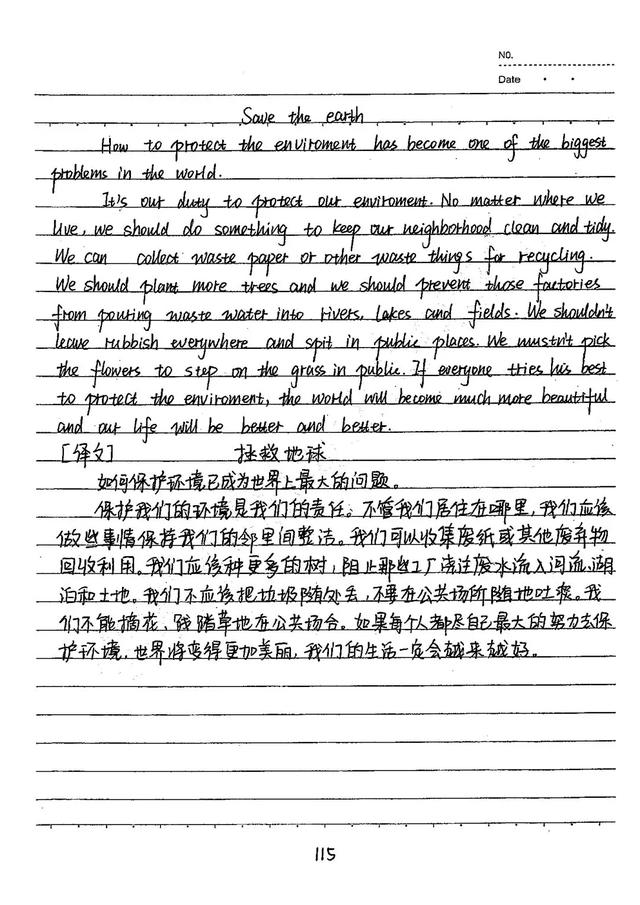 NO.
Date
Save the earth
How to protect the enviroment has become one of the biggest
problems in the world.
It's our duty to protect our enviroment. No matter where we
live, we should do something to keep our neighborhood clean and tidy.
We can collect waste paper or other waste things for recycling.
We should plant more trees and we should prevent those factories
from pouring waste water into rivers, lakes and fields. We shouldn't
leave rubbish everywhere and spit in public places. We mustn't pick
the flowers to step on the grass in public. If everyone tries his best
to protect the enviroment, the world will become much more beautiful
and our life will be better and better.
[译文] 拯救地球
如何保护环境已成为世界上最大的问题。
保护我们的环境是我们的责任。不管我们居住在哪里,我们应该
做些事情保持我们的邻里间整洁。我们可以收集废纸或其他废弃物
回收利用。我们应该种更多的树,阻止那些工厂浇注废水流入河流,湖
泊和土地。我们不应该把垃圾随处丢,不要在公共场所随地吐痰。我
们不能摘花、践踏草地在公共场合。如果每个人都尽自己最大的努力去保
护环境,世界将变得更加美丽,我们的生活一定会越来越好。
115